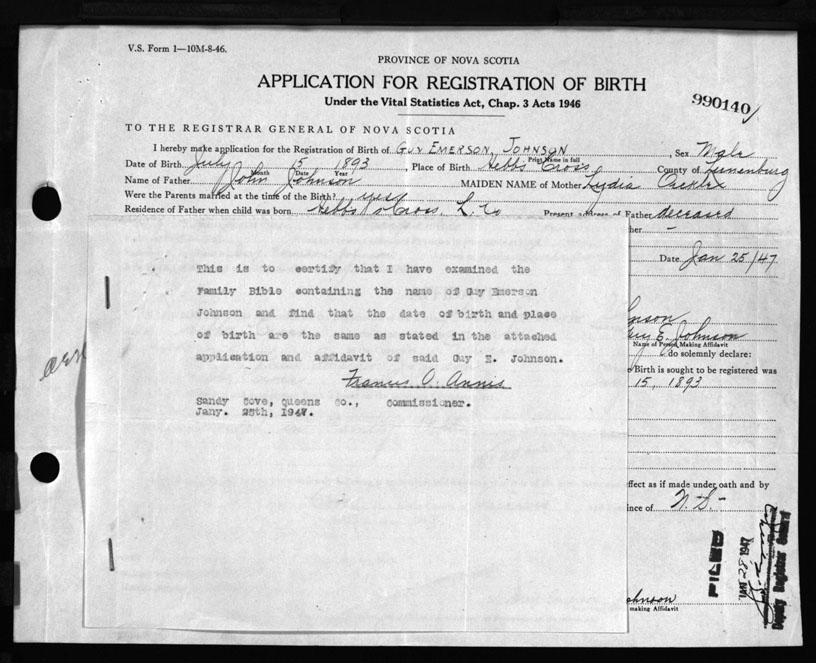 V.S. Form 1—10M-8-46.
PROVINCE OF NOVA SCOTIA
APPLICATION FOR REGISTRATION OF BIRTH
Under the Vital Statistics Act, Chap. 3 Acts 1946
990140
TO THE REGISTRAR GENERAL OF NOVA SCOTIA
I hereby make application for the Registration of Birth of Guy Emerson, Johnson, Sex Male
Print Name in full
Date of Birth July 15 1893, Place of Birth Hebbs Cross County of Lunenburg
Month Date Year
Name of Father John Johnson MAIDEN NAME of Mother Lydia
Were the Parents married at the time of the Birth? yes
Residence of Father when child was born Hebbs Cross, L. Co Present address of Father deceased
her -
Date Jan 25/47
This is to certify that I have examined the
Family Bible containing the name of Guy Emerson
Johnson and find that the date of birth and place
of birth are the same as stated in the attached
application and affidavit of said Guy E. Johnson.
Francis O. Annis
Sandy Cove, Queens Co., Commissioner.
Jany. 25th, 1947.
nson
Guy E. Johnson
Name of Person Making Affidavit
do solemnly declare:
Birth is sought to be registered was
15, 1893
ffect as if made under oath and by
nce of N.S.
FILED
JAN 28 1947
Deputy Registrar General
ohnson
making Affidavit